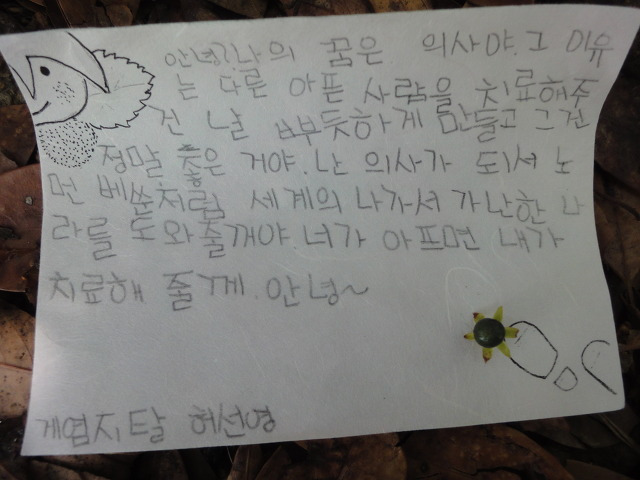 안녕? 나의 꿈은 의사야. 그 이유
는 다른 아픈 사람을 치료해주
건 날 뿌듯하게 만들고 그건
정말 좋은 거야. 난 의사가 되서 노
먼 베쑨처럼 세계의 나가서 가난한 나
라를 도와줄거야. 너가 아프면 내가
치료해 줄게. 안녕~
게염지탈 허선영